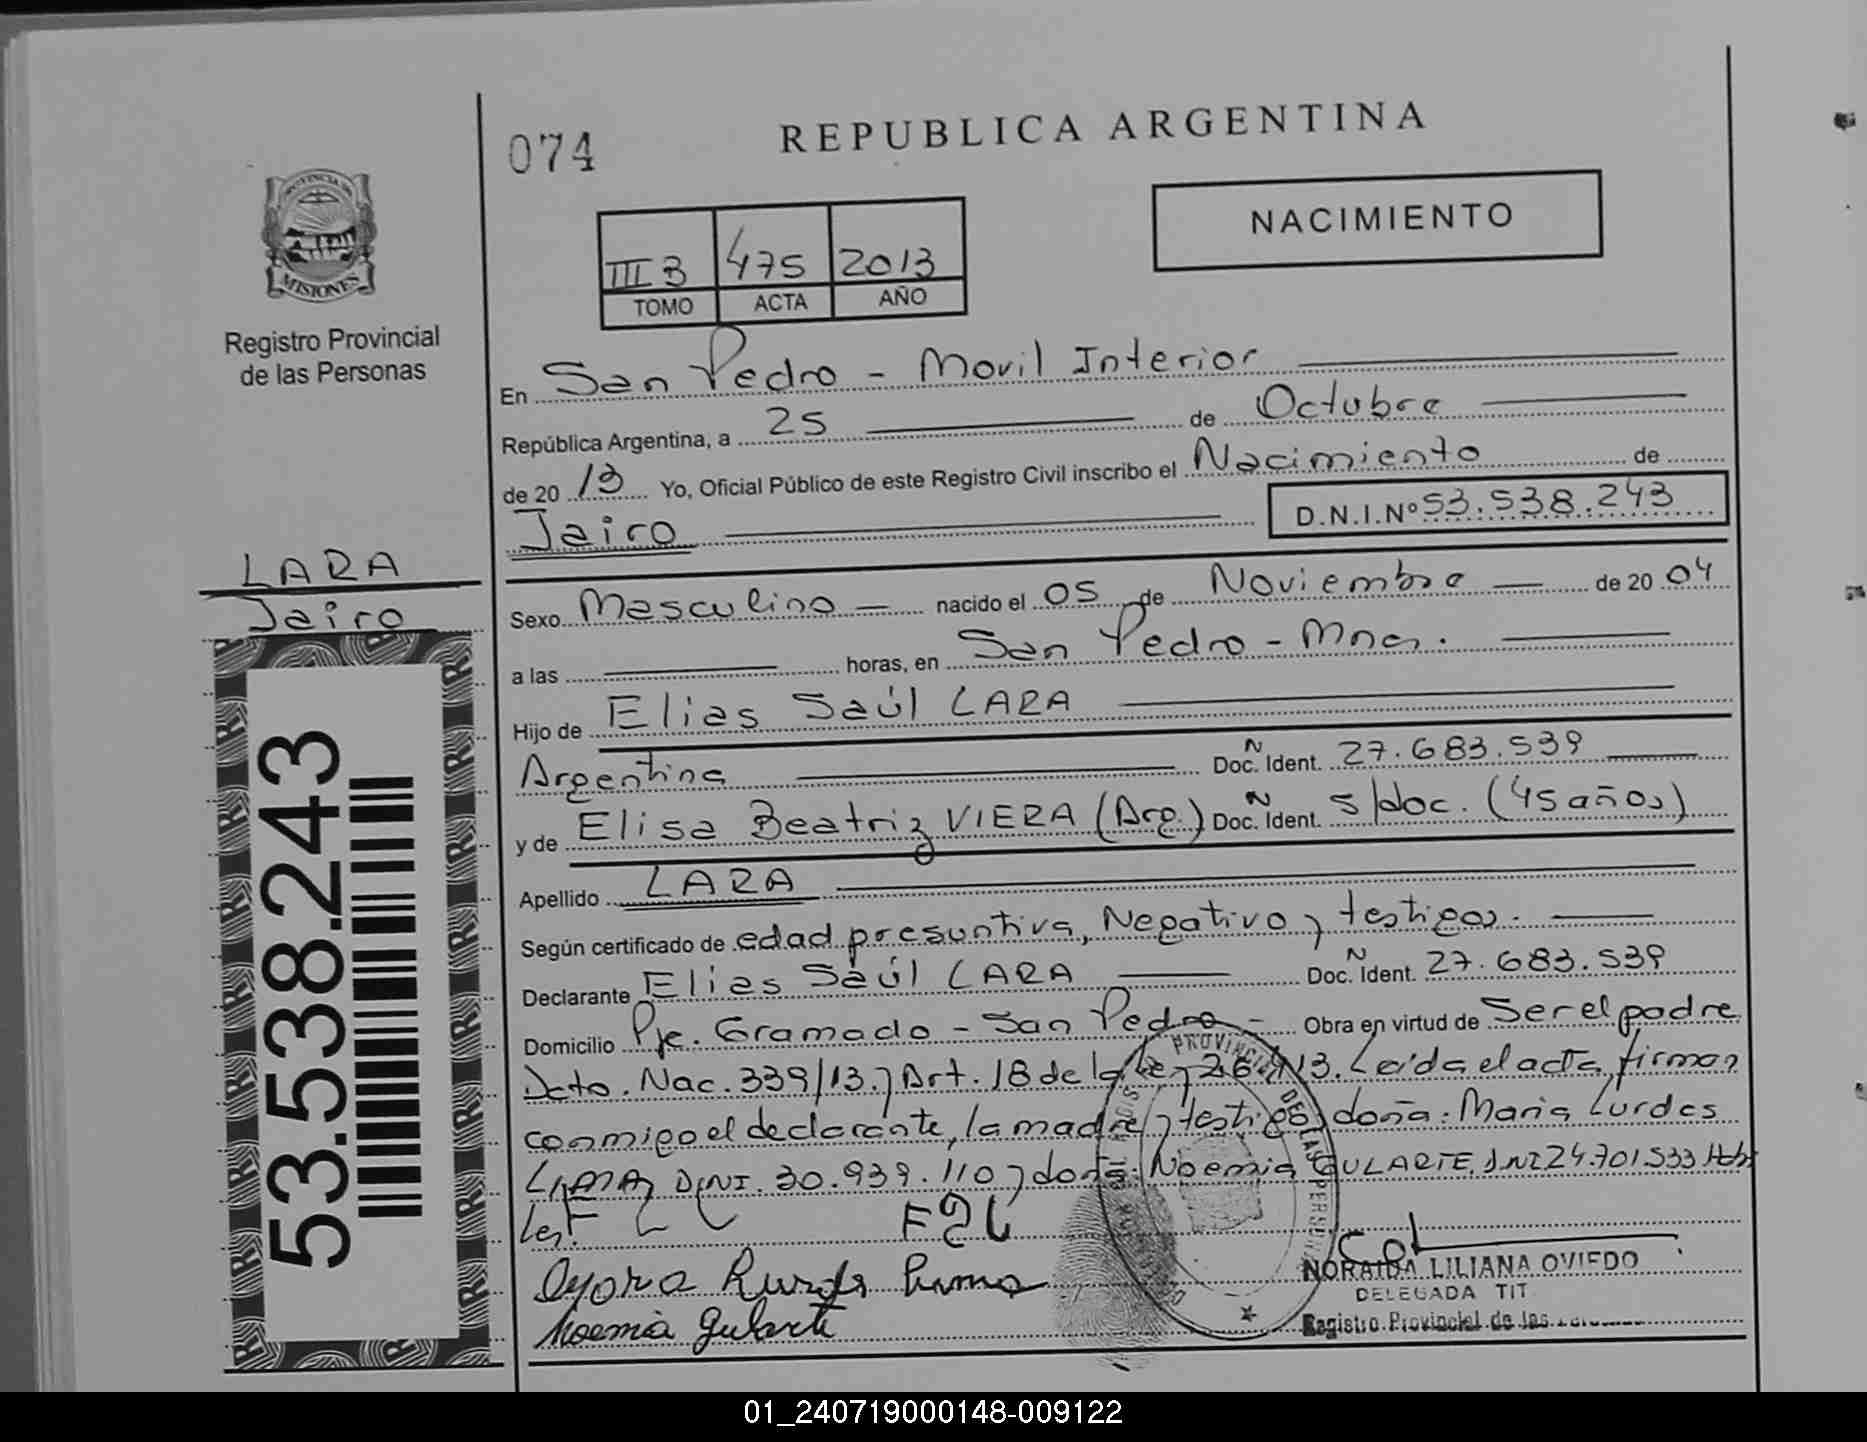 074
REPUBLICA ARGENTINA
PROVINCIA DE
MISIONES
Registro Provincial
de las Personas
NACIMIENTO
III B 475 2013
TOMO ACTA AÑO
En San Pedro - Movil Interior
República Argentina, a 25 de Octubre
de 20 13 Yo, Oficial Público de este Registro Civil inscribo el Nacimiento de
Jairo D.N.I.Nº 53.538.243
LARA
Jairo
53.538.243
Sexo Masculino nacido el 05 de Noviembre de 20 04
a las horas, en San Pedro - Mnes.
Hijo de Elias Saúl LARA
Argentina Doc. Ñ Ident. 27.683.539
y de Elisa Beatriz VIERA (Arg.) Doc. Ñ Ident. s/doc. (45 años)
Apellido LARA
Según certificado de edad presuntiva, Negativo y testigos.
Declarante Elias Saúl LARA Doc. Ñ Ident. 27.683.539
Domicilio Pje. Gramado - San Pedro - Obra en virtud de Ser el padre
Dcto. Nac. 339/13 y Art. 18 de la Ley 26.413. Leída el acta, firman
conmigo el declarante, la madre y testigos doña: Maria Lurdes
LIMA, DNI. 30.939.110 y doña: Noemia GULARTE, DNI 24.701.533
Noemia Gularte
PROVINCIAL DE LAS PERSONAS
NORAIDA LILIANA OVIEDO
DELEGADA TIT
Registro Provincial de las
01_240719000148-009122